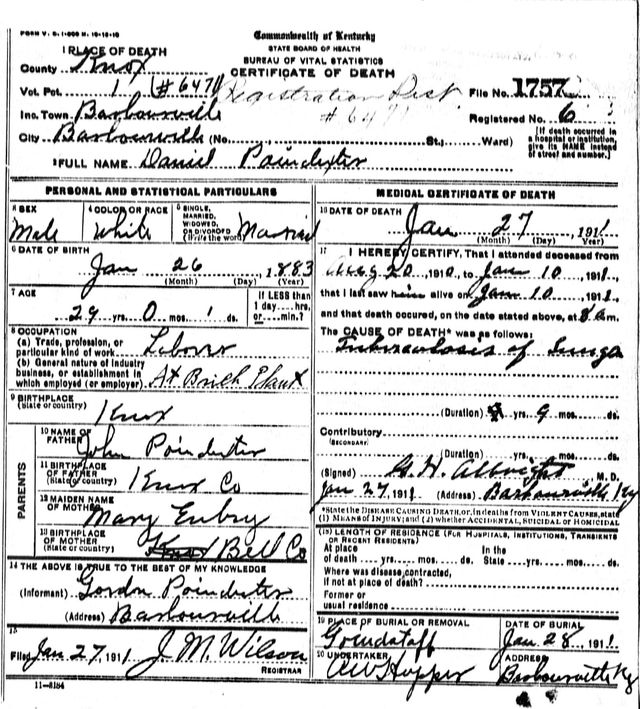 FORM V. S. 1-
Commonwealth of Kentucky
STATE BOARD OF HEALTH
BUREAU OF VITAL STATISTICS
CERTIFICATE OF DEATH
1 PLACE OF DEATH
County Knox
Vot. Pct. 1 (#6471)
Registration Dist
#6471
File No. 1757
Registered No. 6
Inc. Town Barbourville
City Barbourville (No. St.; Ward)
[If death occurred in a hospital or institution, give its NAME instead of street and number.]
2 FULL NAME Daniel Poindexter
PERSONAL AND STATISTICAL PARTICULARS
3 SEX
Male
4 COLOR OR RACE
White
5 SINGLE, MARRIED, WIDOWED, OR DIVORCED (Write the word)
Married
6 DATE OF BIRTH
Jan 26, 1883
(Month) (Day) (Year)
7 AGE
29 yrs. 0 mos. 1 ds.
If LESS than 1 day.... hrs. or.... min.?
8 OCCUPATION
(a) Trade, profession, or particular kind of work Laborer
(b) General nature of industry business, or establishment in which employed (or employer) At Brick Plant
9 BIRTHPLACE
(State or country) Knox
PARENTS
10 NAME OF FATHER
John Poindexter
11 BIRTHPLACE OF FATHER
(State or country) Knox Co
12 MAIDEN NAME OF MOTHER
Mary
13 BIRTHPLACE OF MOTHER
(State or country) Knox Bell Co
14 THE ABOVE IS TRUE TO THE BEST OF MY KNOWLEDGE
(Informant) Gordon Poindexter
(Address) Barbourville
15
Filed Jan 27, 1911 J. M. Wilson
REGISTRAR
11-8184
MEDICAL CERTIFICATE OF DEATH
16 DATE OF DEATH
Jan 27, 1911
(Month) (Day) (Year)
17 I HEREBY CERTIFY, That I attended deceased from
Aug 20 1910, to Jan 10 1911,
that I last saw him alive on Jan 10 1911,
and that death occurred, on the date stated above, at 8 am.
The CAUSE OF DEATH* was as follows:
Tuberculosis of Lungs
(Duration) yrs. 9 mos. ds.
Contributory
(SECONDARY)
(Duration) yrs. mos. ds.
(Signed) G. H. Albright M. D.
Jan 27, 1911 (Address) Barbourville Ky
*State the DISEASE CAUSING DEATH, or, in deaths from VIOLENT CAUSES, state (1) MEANS OF INJURY; and (2) whether ACCIDENTAL, SUICIDAL or HOMICIDAL
18 LENGTH OF RESIDENCE (FOR HOSPITALS, INSTITUTIONS, TRANSIENTS OR RECENT RESIDENTS)
At place of death yrs. mos. ds. In the State yrs. mos. ds.
Where was disease contracted, if not at place of death?
Former or usual residence
19 PLACE OF BURIAL OR REMOVAL
DATE OF BURIAL
Jan 28, 1911
20 UNDERTAKER
A W Hopper
ADDRESS
Barbourville Ky